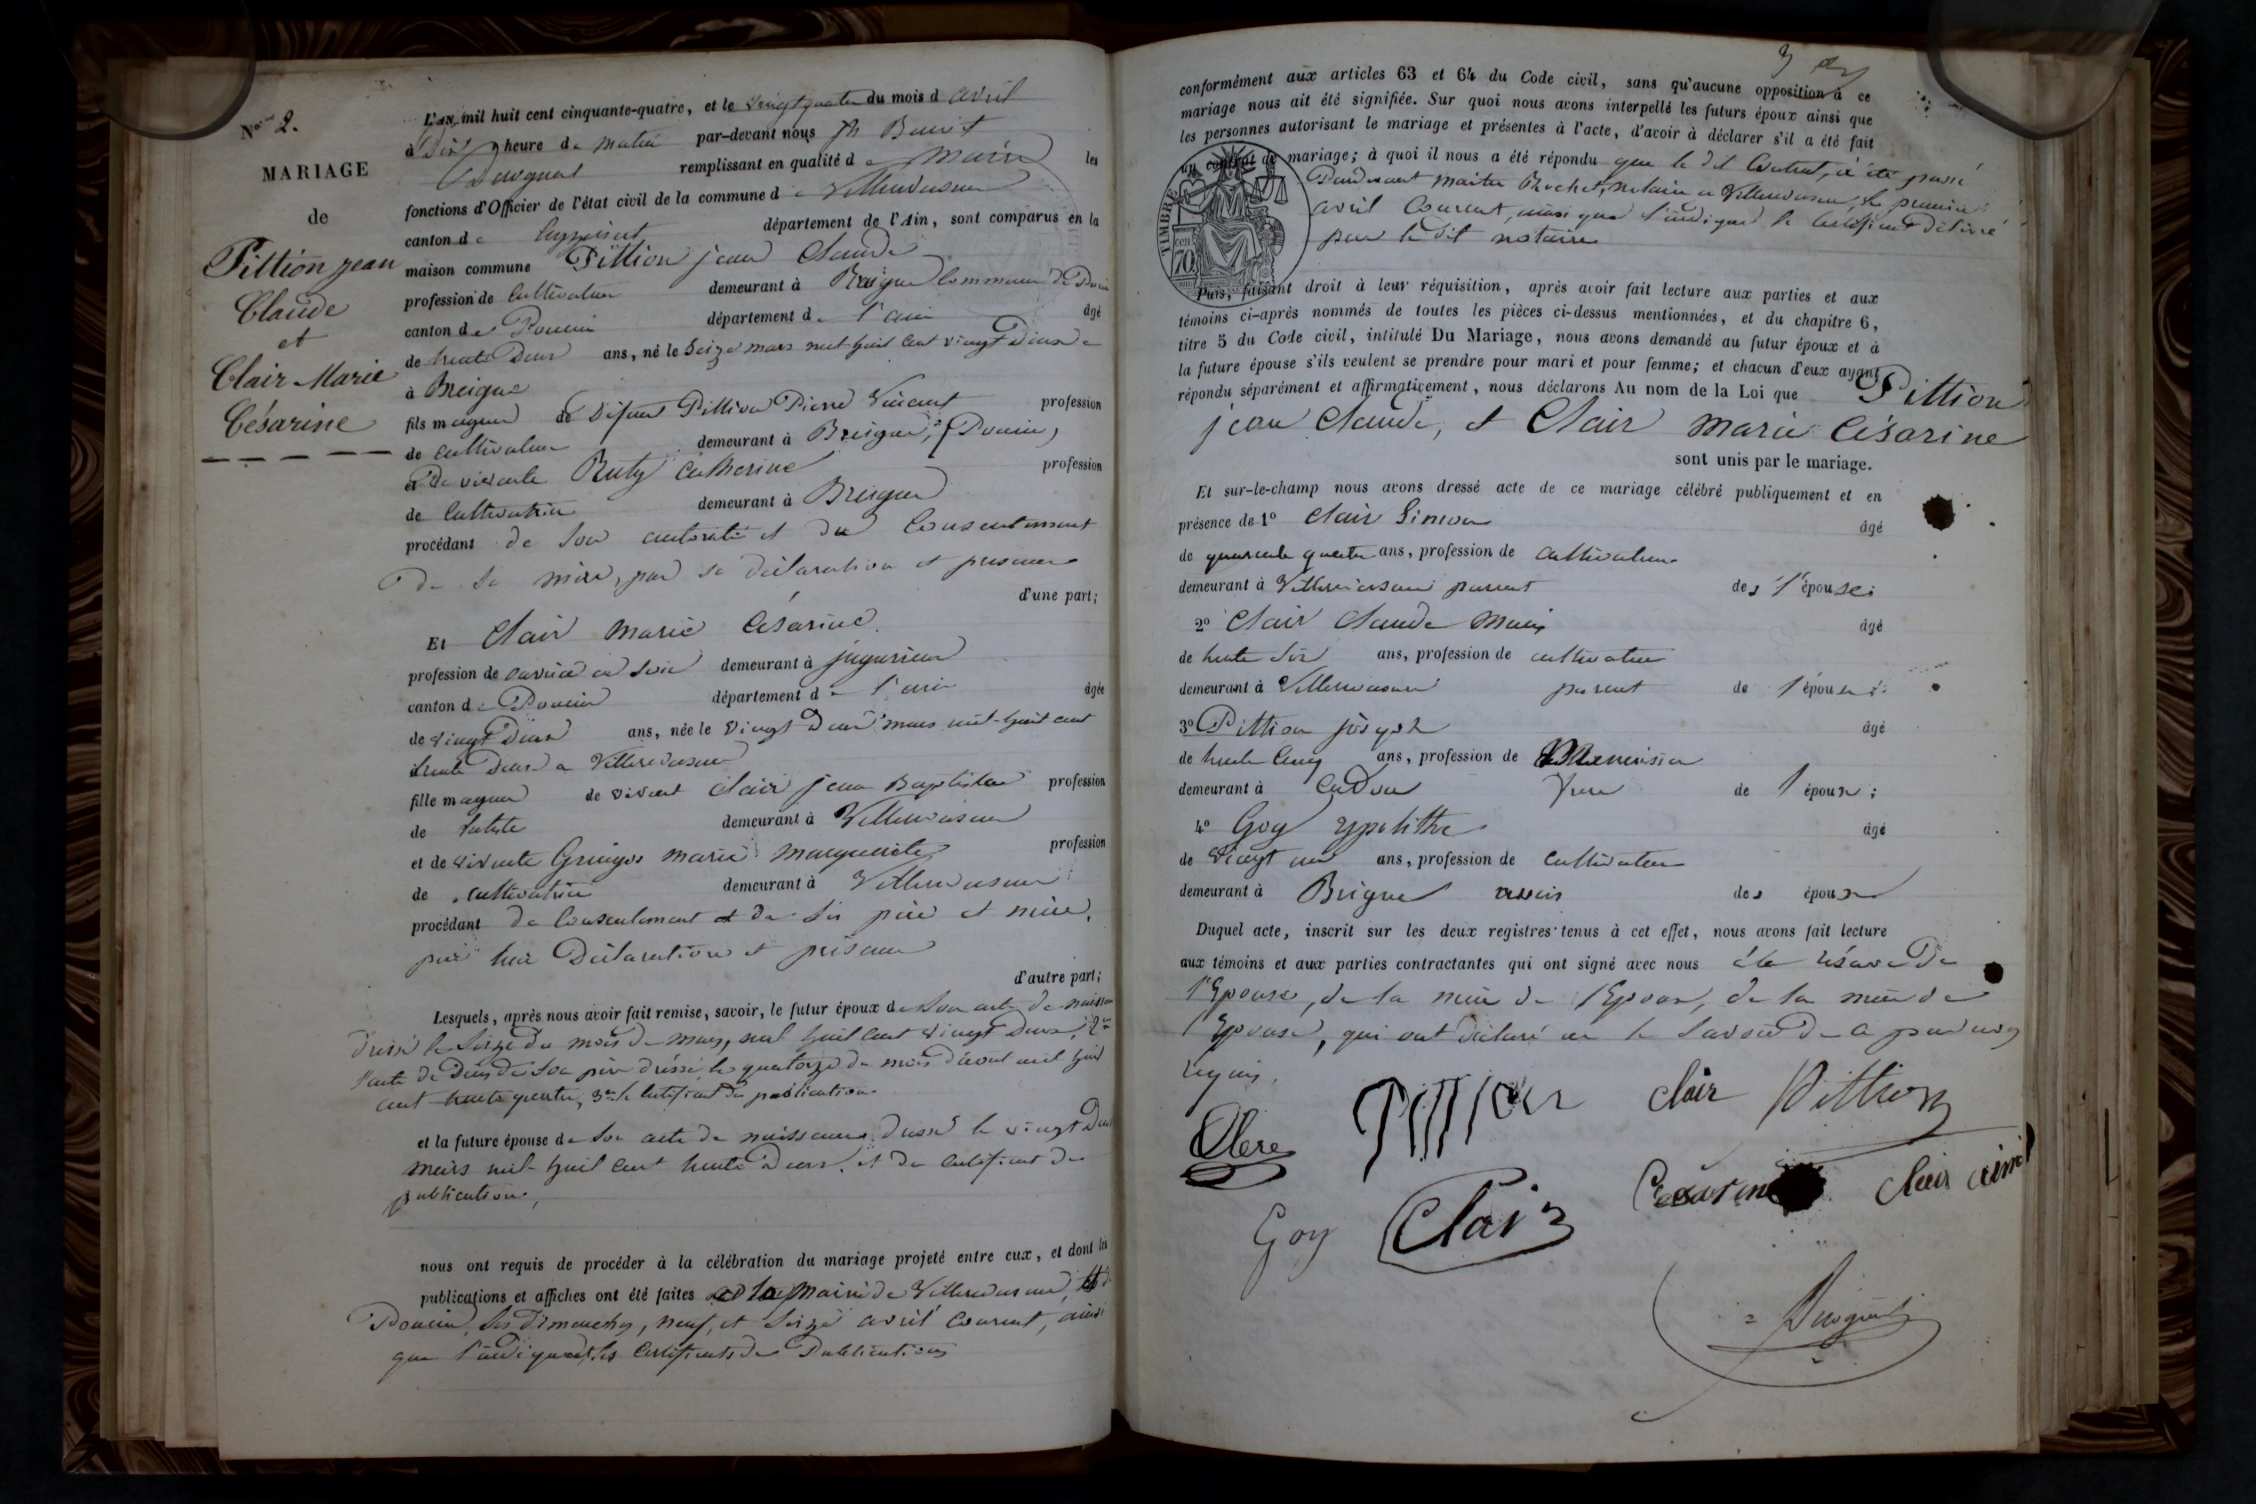 No 2.
MARIAGE
de
Pittion jean
Claude
et
Clair Marie
Césarine
L'an mil huit cent cinquante-quatre, et le vingt quatre du mois d avril
à Dix heure de matin par-devant nous Benoit
remplissant en qualité de Maire les
fonctions d'Officier de l'état civil de la commune de Villereversure
canton de Ceyzeriat département de l'Ain, sont comparus en la
maison commune Pittion jean Claude
profession de Cultivateur demeurant à commune de
canton de Poncin département de l'ain âgé
de trente Deux ans, né le Seize mars mil huit cent vingt Deux
à Breigne
fils majeur de Défunt Pittion Pierre Vincent profession
de cultivateur demeurant à Breigne, (Poncin)
et De vivante Ruty Catherine profession
de Cultivatrice demeurant à Breigne
procédant de son autorité et du Consentement
De Sa mère, par sa déclaration et présence
d'une part;
Et Clair Marie Césarine
profession de ouvrière en soie demeurant à jujurieux
canton de Poncin département de l'ain âgée
de vingt Deux ans, née le vingt Deux mars mil huit cent
trente Deux a Villereversure
fille majeur de vivant Clair jean Baptiste profession
de demeurant à Villereversure
et de vivante marie marguerite profession
de cultivatrice demeurant à Villereversure
procédant de Consentement et de Ses père et mère,
par leur Déclaration et présence
d'autre part;
Lesquels, après nous avoir fait remise, savoir, le futur époux de Son acte de naissance
Dressé le Seize Du mois De mars, mil huit cent vingt Deux, 2°
l'acte de Décès de Son père dressé le quatorze du mois d'aout mil huit
cent trente quatre, 3° le Certificat de publication
et la future épouse de Son acte de naissance Dressé le vingt Deux
mars mil huit cent trente Deux. et Du Certificat de
publication,
nous ont requis de procéder à la célébration du mariage projeté entre eux, et dont les
publications et affiches ont été faites a la Mairie de Villereversure, et
Poncin, les Dimanches, neuf, et Seize avril Courant, ainsi
que l'indiquent les Certificats de Publications
conformément aux articles 63 et 64 du Code civil, sans qu'aucune opposition à ce
mariage nous ait été signifiée. Sur quoi nous avons interpellé les futurs époux ainsi que
les personnes autorisant le mariage et présentes à l'acte, d'avoir à déclarer s'il a été fait
un contrat de mariage; à quoi il nous a été répondu que le dit Contrat, a été passé
Pardevant Maitre Brochet, notaire a Villereversure, le premier
avril Courant, ainsi que l'indique le Certificat Délivré
par le dit notaire
TIMBRE
70
Puis, faisant droit à leur réquisition, après avoir fait lecture aux parties et aux
témoins ci-après nommés de toutes les pièces ci-dessus mentionnées, et du chapitre 6,
titre 5 du Code civil, intitulé Du Mariage, nous avons demandé au futur époux et à
la future épouse s'ils veulent se prendre pour mari et pour femme; et chacun d'eux ayant
répondu séparément et affirmativement, nous déclarons Au nom de la Loi que Pittion
jean Claude, et Clair Marie Césarine
sont unis par le mariage.
Et sur-le-champ nous avons dressé acte de ce mariage célébré publiquement et en
présence de 1° Clair Simeon âgé
de quarante quatre ans, profession de Cultivateur
demeurant à Villereversure parent de l'épouse;
2° Clair Claude Marie âgé
de trente Six ans, profession de cultivateur
demeurant à Villereversure parent de l'épouse;
3° Pittion joseph âgé
de trente Cinq ans, profession de Menuisier
demeurant à Cerdon frere de l'époux;
4° Goy ypolithe âgé
de vingt un ans, profession de Cultivateur
demeurant à Brigne des époux
Duquel acte, inscrit sur les deux registres tenus à cet effet, nous avons fait lecture
aux témoins et aux parties contractantes qui ont signé avec nous à la réserve De
l'Epouse, de la mère de l'Epoux, de la mère de
l'Epouse, qui ont déclaré ne le Savoir De a par nous
requis.
Pittion Clair Pittion
Clere
Goy Clair Cesarine Clair aimé